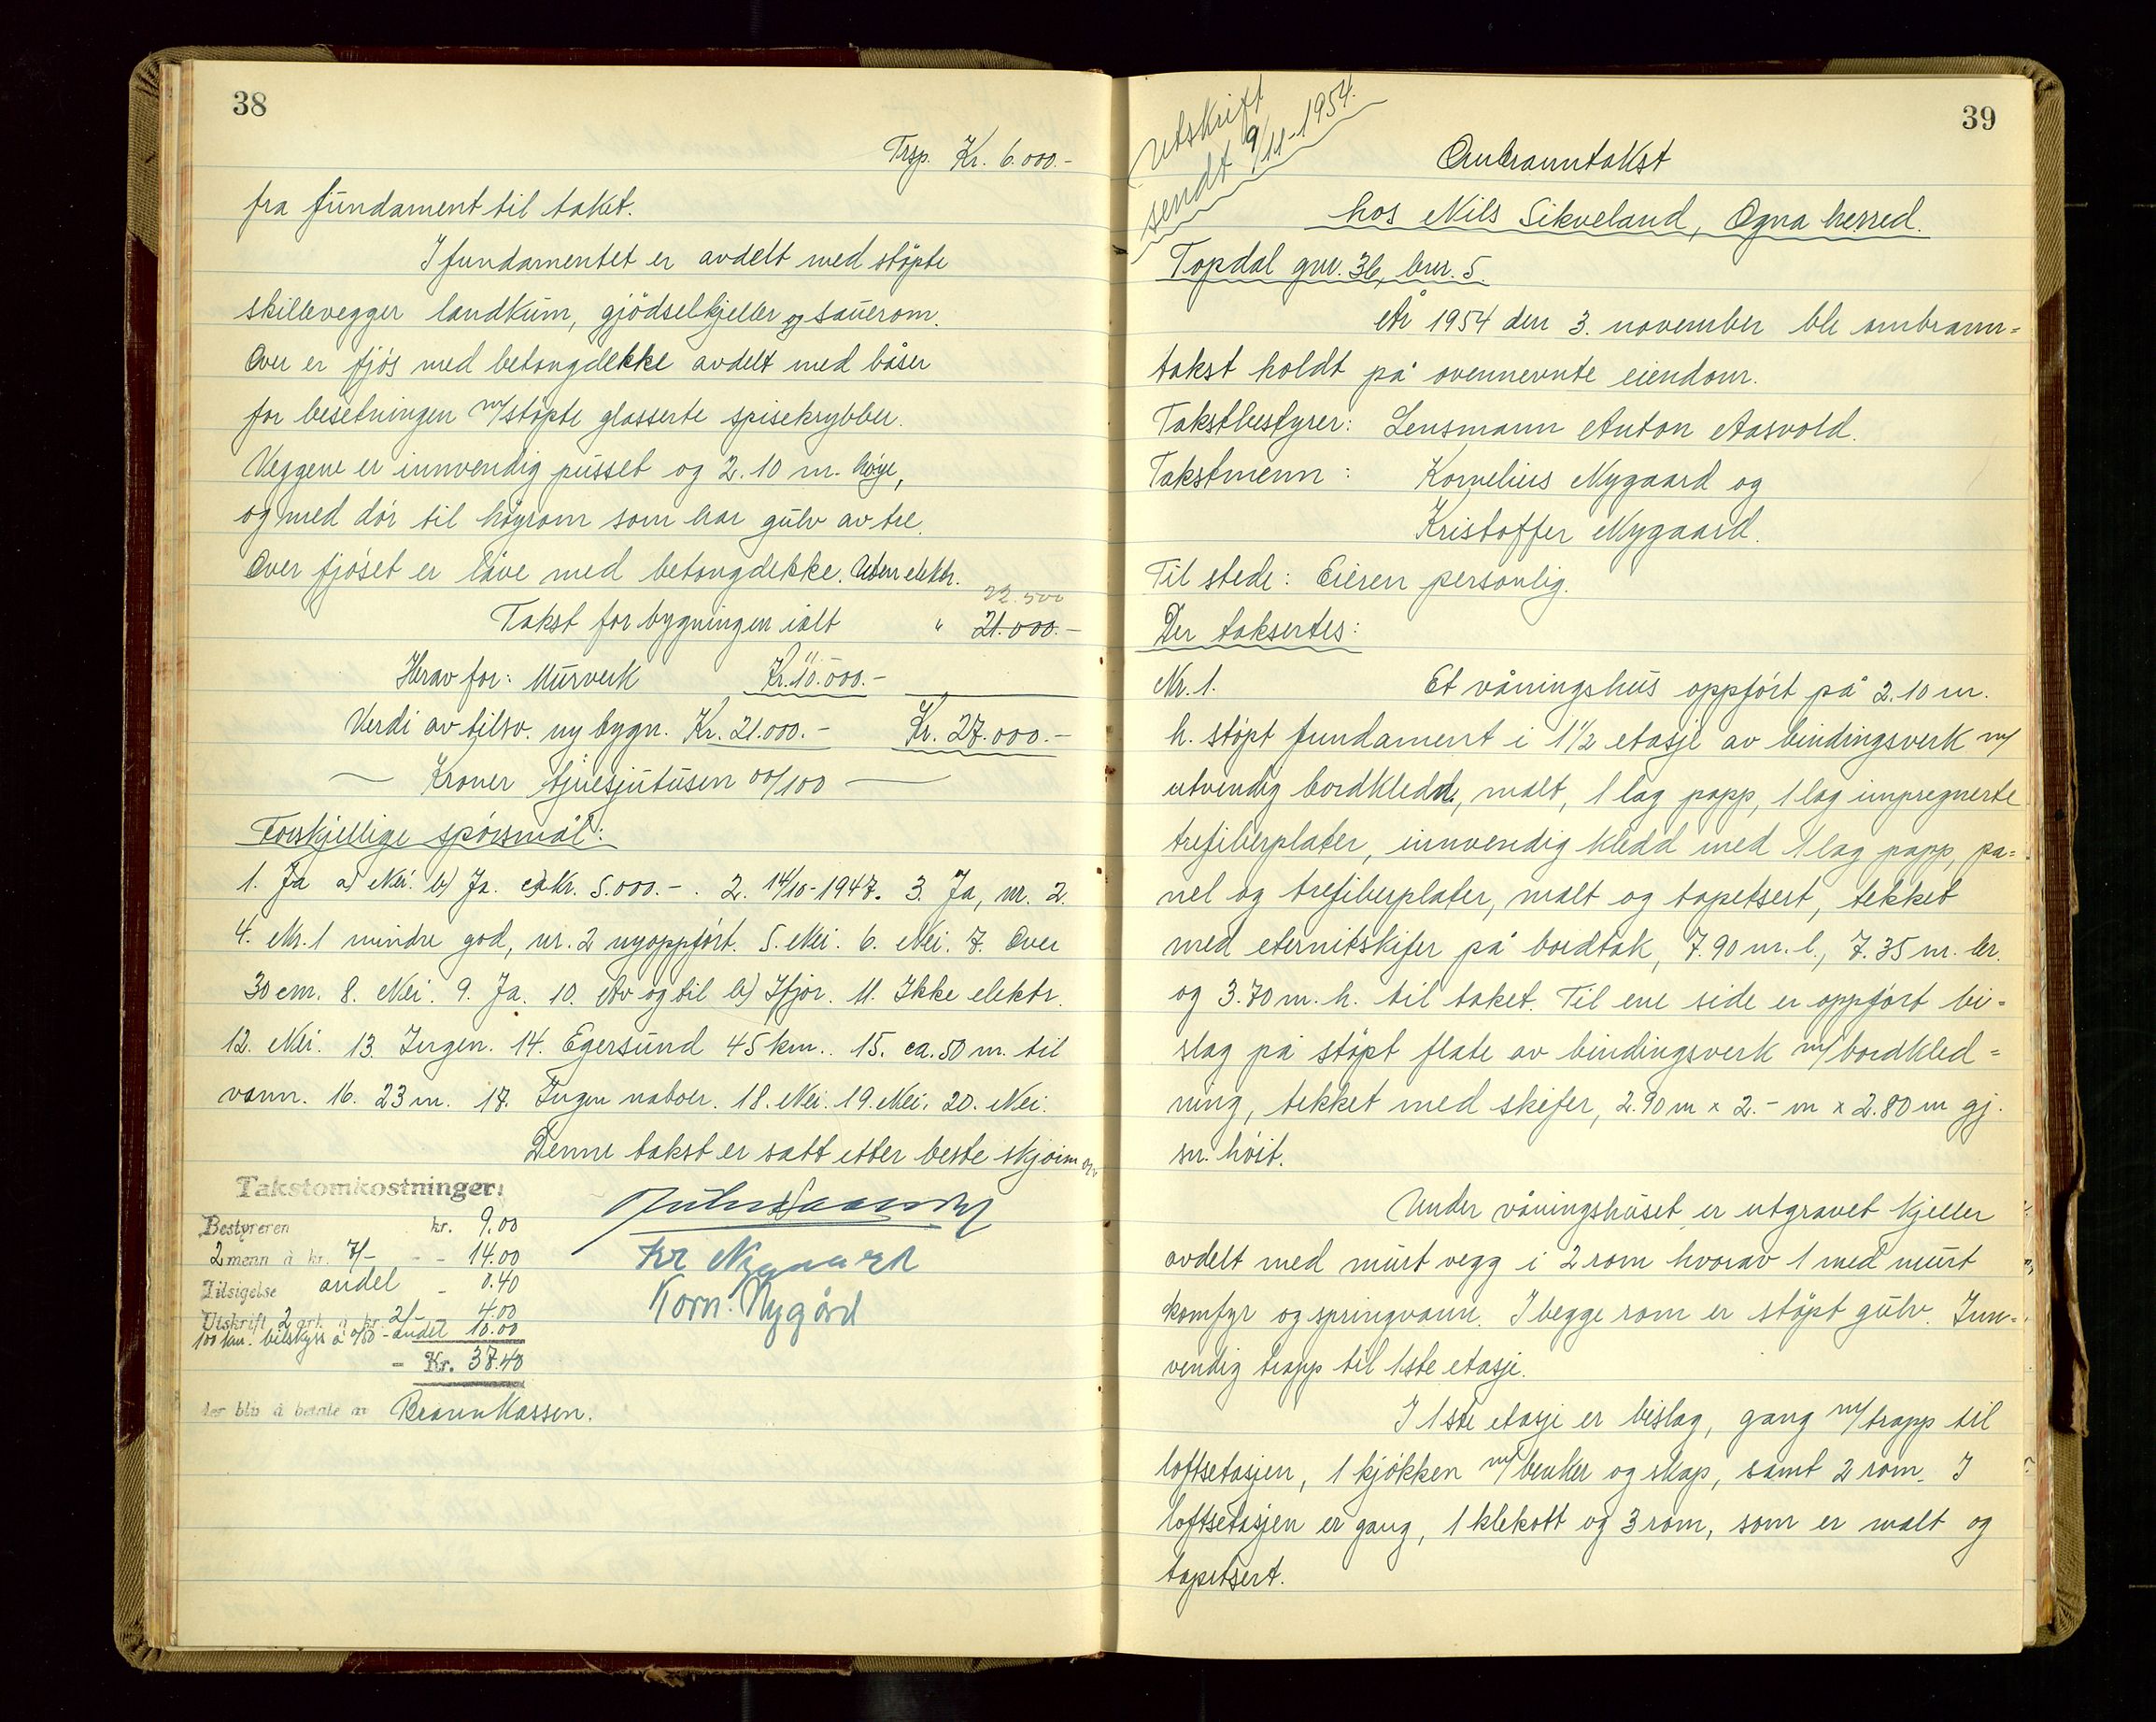 38
Trsp. Kr. 6.000.-
fra fundament til taket.
I fundamentet er avdelt med støpte
skillevegger landkum, gjødselkjeller og sauerom.
Over er fjøs med betongdekke avdelt med båser
for besetningen m/støpte glasserte spisekrybber.
Veggene er innvendig pusset og 2.10 m. høye,
og med dør til høyrom som har gulv av tre.
Over fjøset er låve med betongdekke. Uten elektr.
22.500
Takst for bygningen ialt " 21.000.-
11
Herav for: Murverk Kr. 10.000.-
Verdi av tilsv. ny bygn. Kr. 21.000.- Kr. 27.000.-
Kroner tjuesjutusen 00/100
Forskjellige spørsmål:
1. Ja a) Nei. b) Ja. c) Kr. 5.000.- . 2. 14/10-1947. 3. Ja, nr. 2.
4. Nr. 1 mindre god, nr. 2 nyoppført. 5. Nei. 6. Nei. 7. Over
30 cm. 8. Nei. 9. Ja. 10. Av og til b) Ifjor. 11. Ikke elektr.
12. Nei. 13. Ingen. 14. Egersund 45 km.. 15. ca. 50 m. til
vann. 16. 23 m. 17. Ingen naboer. 18. Nei. 19. Nei. 20. Nei.
Denne takst er satt etter beste skjønn
Takstomkostninger:
Bestyreren kr. 9.00
2 menn à kr. 7/- - - 14.00
Tilsigelse andel - 0.40
Utskrift 2 ark à kr. 2/- 4.00
100 km. bilskyss à - andel 10.00
- Kr. 37.40
der blir å betale av Brannkassen.
Kr Nygaard
Korn. Nygård
39
Utskrift
sendt 9/11-1954.
Ombranntakst
hos Nils Sikveland, Ogna herred.
Topdal gnr. 36, bnr. 5
År 1954 den 3. november ble ombrann=
takst holdt på ovennevnte eiendom.
Takstbestyrer: Lensmann Anton Aasvold.
Takstmenn: Kornelius Nygaard og
Kristoffer Nygaard.
Til stede: Eieren personlig.
Der taksertes:
Nr. 1. Et våningshus oppført på 2.10 m.
h. støpt fundament i 1 1/2 etasje av bindingsverk m/
utvendig bordkledd, malt, 1 lag papp, 1 lag impregnerte
trefiberplater, innvendig kledd med 1 lag papp, pa=
nel og trefiberplater, malt og tapetsert, tekket
med eternitskifer på bordtak, 7.90 m. l., 7.35 m. br.
og 3.70 m. h. til taket. Til ene side er oppført bi=
slag på støpt flate av bindingsverk m/bordkled=
ning, tekket med skifer, 2.90 m x 2.- m x 2.80 m gj.
sn. høit.
Under våningshuset er utgravet kjeller
avdelt med murt vegg i 2 rom hvorav 1 med murt
komfyr og springvann. I begge rom er støpt gulv. Inn=
vendig trapp til 1ste etasje.
I 1ste etasje er bislag, gang m/trapp til
loftsetasjen, 1 kjøkken m/benker og skap, samt 2 rom. I
loftsetasjen er gang, 1 klekott og 3 rom, som er malt og
tapetsert.